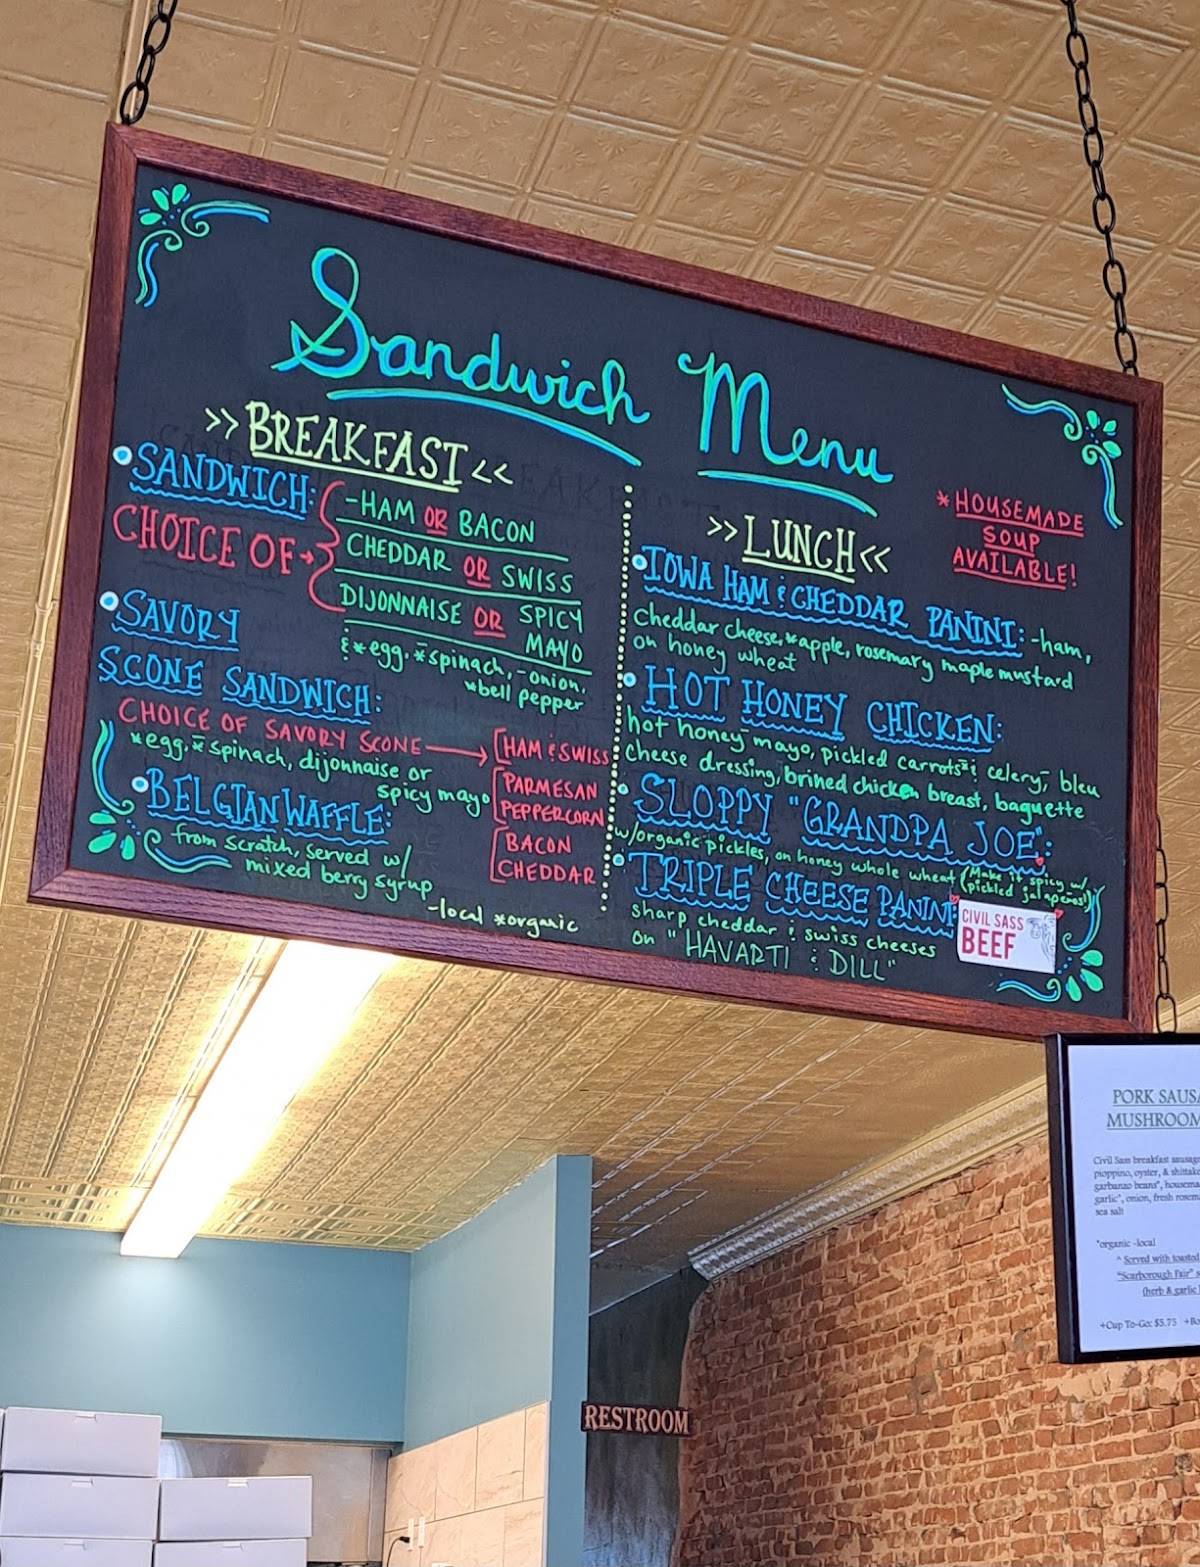 Sandwich Menu
>> BREAKFAST <<
• SANDWICH:
CHOICE OF →
-HAM OR BACON
CHEDDAR OR SWISS
DIJONNAISE OR SPICY
MAYO
& *egg, *spinach, -onion,
*bell pepper
• SAVORY
SCONE SANDWICH:
CHOICE OF SAVORY SCONE →
[HAM & SWISS
[PARMESAN
PEPPERCORN
[BACON
CHEDDAR
*egg, *spinach, dijonnaise or
spicy mayo
• BELGIAN WAFFLE:
from scratch, served w/
mixed berry syrup
-local *organic
* HOUSEMADE
SOUP
AVAILABLE!
>> LUNCH <<
• IOWA HAM & CHEDDAR PANINI: -ham,
cheddar cheese, *apple, rosemary maple mustard
on honey wheat
• HOT HONEY CHICKEN:
hot honey mayo, pickled carrots* & celery, bleu
cheese dressing, brined chicken breast, baguette
• SLOPPY "GRANDPA JOE":
w/organic pickles, on honey whole wheat (Make it spicy w/
pickled jalapenos!)
• TRIPLE CHEESE PANINI
sharp cheddar & swiss cheeses
on "HAVARTI & DILL"
CIVIL SASS
BEEF
PORK SAUSA
MUSHROOM
Civil Sass breakfast sausage
pioppino, oyster, & shiitake
garbanzo beans*, housema
garlic*, onion, fresh rosem
sea salt
*organic -local
^ Served with toasted
"Scarborough Fair" s
(herb & garlic
+Cup To-Go: $5.75 +Bo
RESTROOM